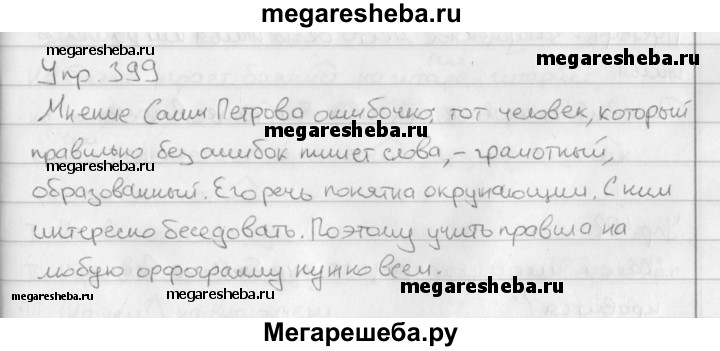 megaresheba.ru
megaresheba.ru
megaresheba.ru
Упр. 399
Мнение Саши Петрова ошибочно, тот человек, который
megaresheba.ru
правильно без ошибок пишет слова, – грамотный,
megaresheba.ru
megaresheba.ru
образованный. Его речь понятна окружающим. С ним
интересно беседовать. Поэтому учить правила на
любую орфограмму нужно всем.
megaresheba.ru
megaresheba.ru
megaresheba.ru
Мегарешеба.ру